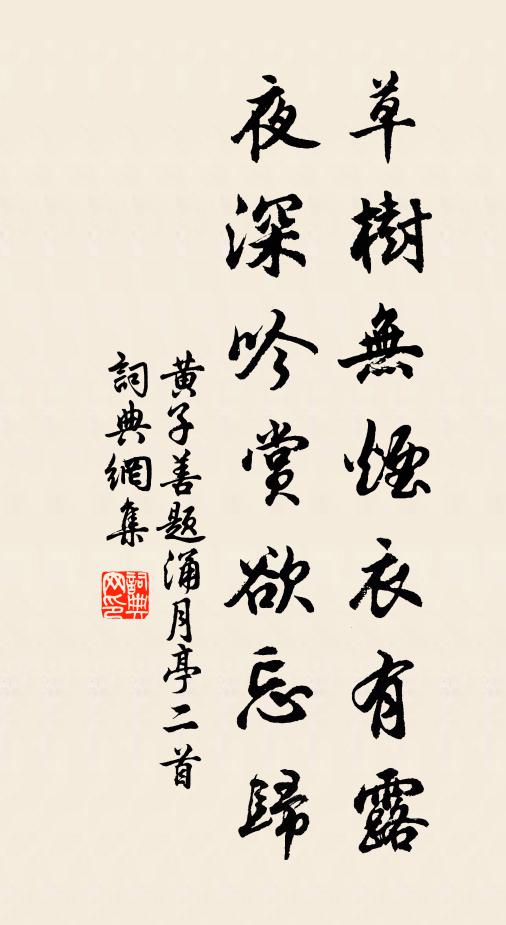 草樹無煙衣有露
夜深吟賞欲忘歸
黃子善題涌月亭二首
詞典網集
詞典
網印